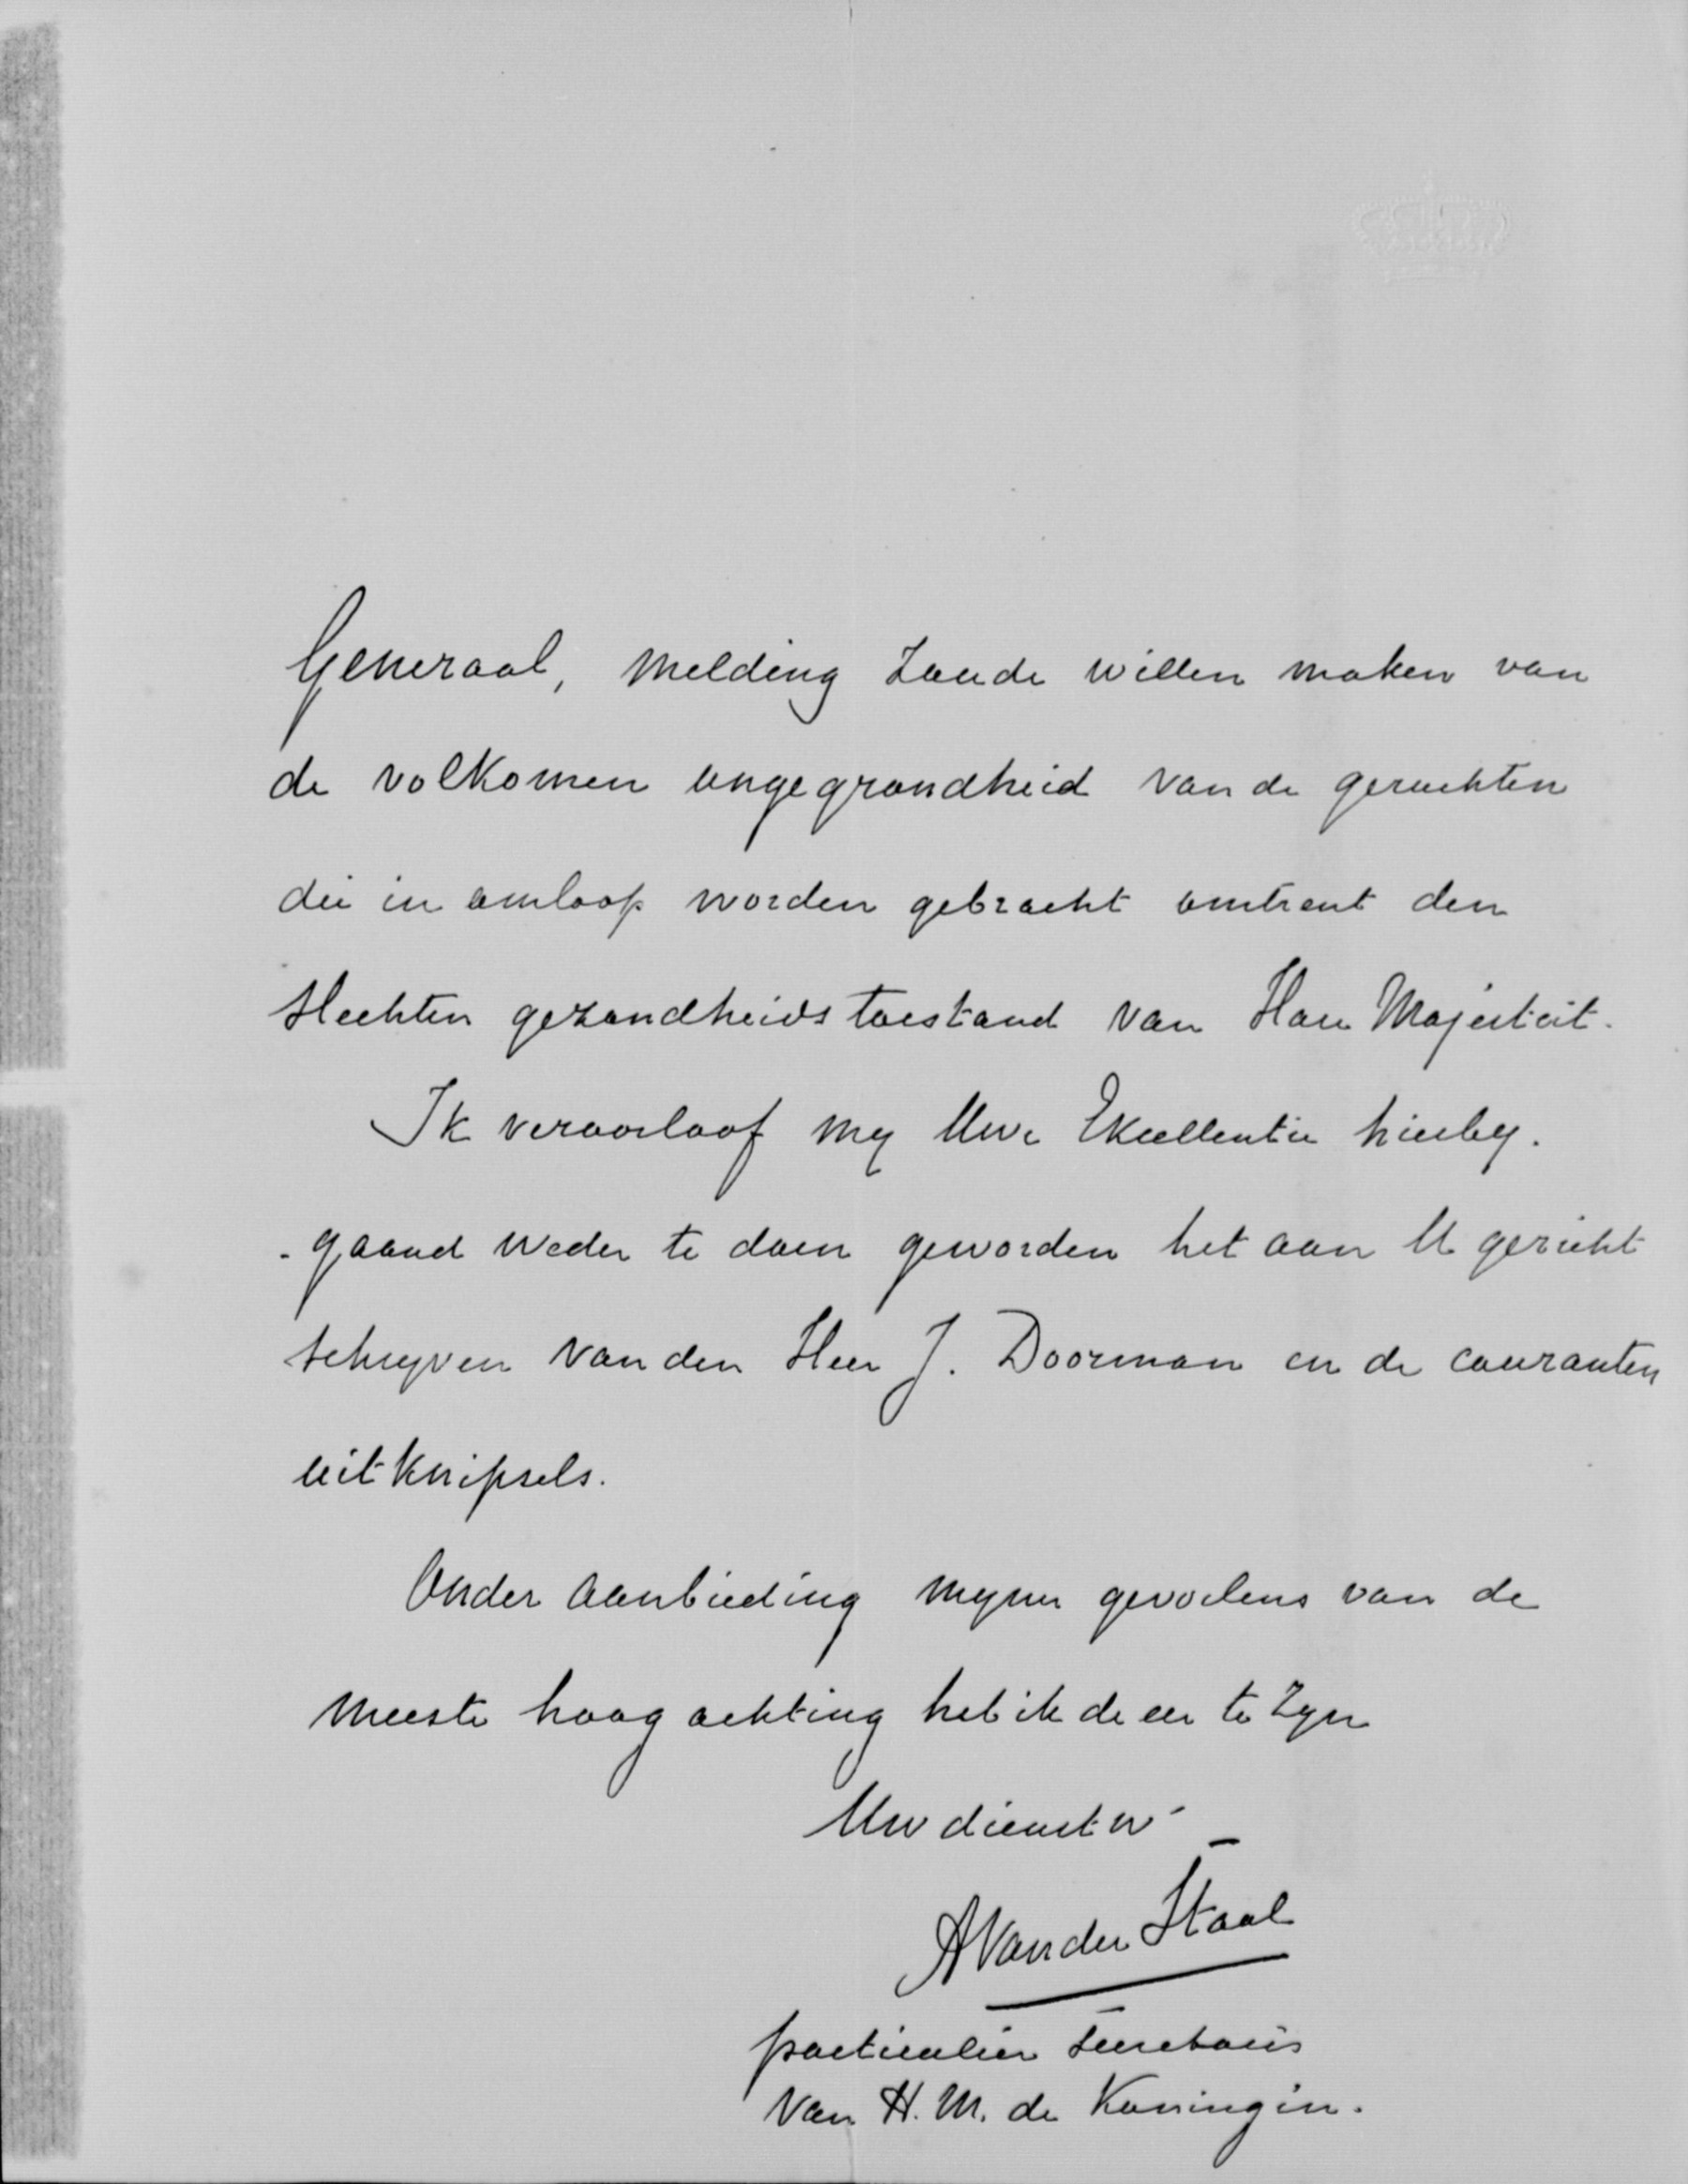 Generaal, melding zoude willen maken van
de volkomen ongegrondheid van de geruchten
die in omloop worden gebracht omtrent den
slechten gezondheidstoestand van Hare Majesteit.
Ik veroorloof my Uwe Excellentie hierby-
-gaand weder te doen geworden het aan U gericht
schryven van den Heer J. Doorman en de couranten
uitknipsels.
Onder aanbieding myner gevoelens van de
meeste hoogachting heb ik de eer te zyn
Uw dienstw
A Van der Staal
particulier secretaris
van H. M. de Koningin.